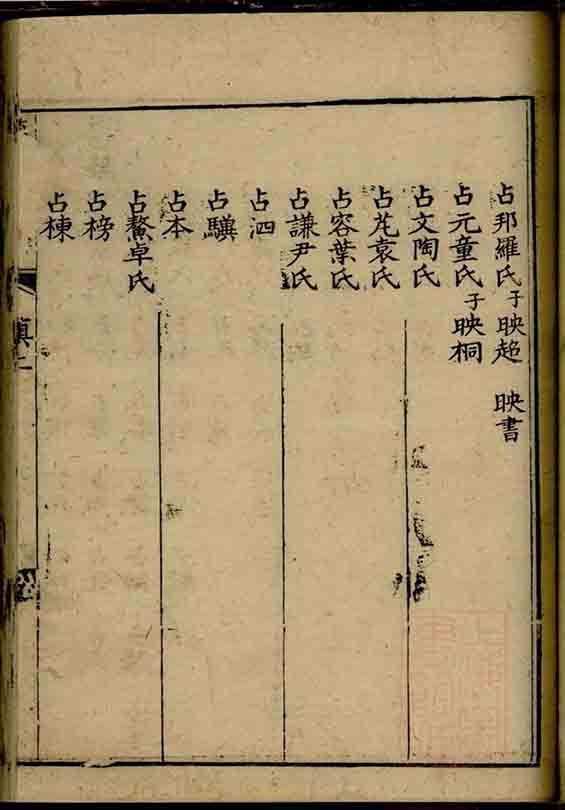 占邦羅氏子映超 映書
占元童氏子映桐
占文陶氏
占芃袁氏
占容葉氏
占謙尹氏
占泗
占驥
占本
占鰲卓氏
占榜
占棟